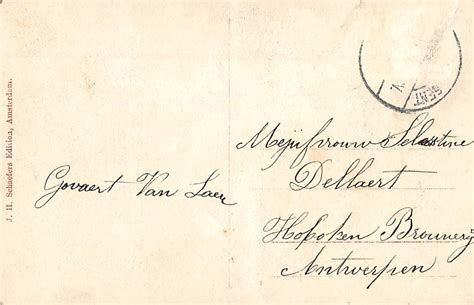 J. H. Schaefers Edition, Amsterdam.
GENT
Govaert Van Laer
Mejufvrouw Selestine
Dellaert
Hoboken Brouwerij
Antwerpen